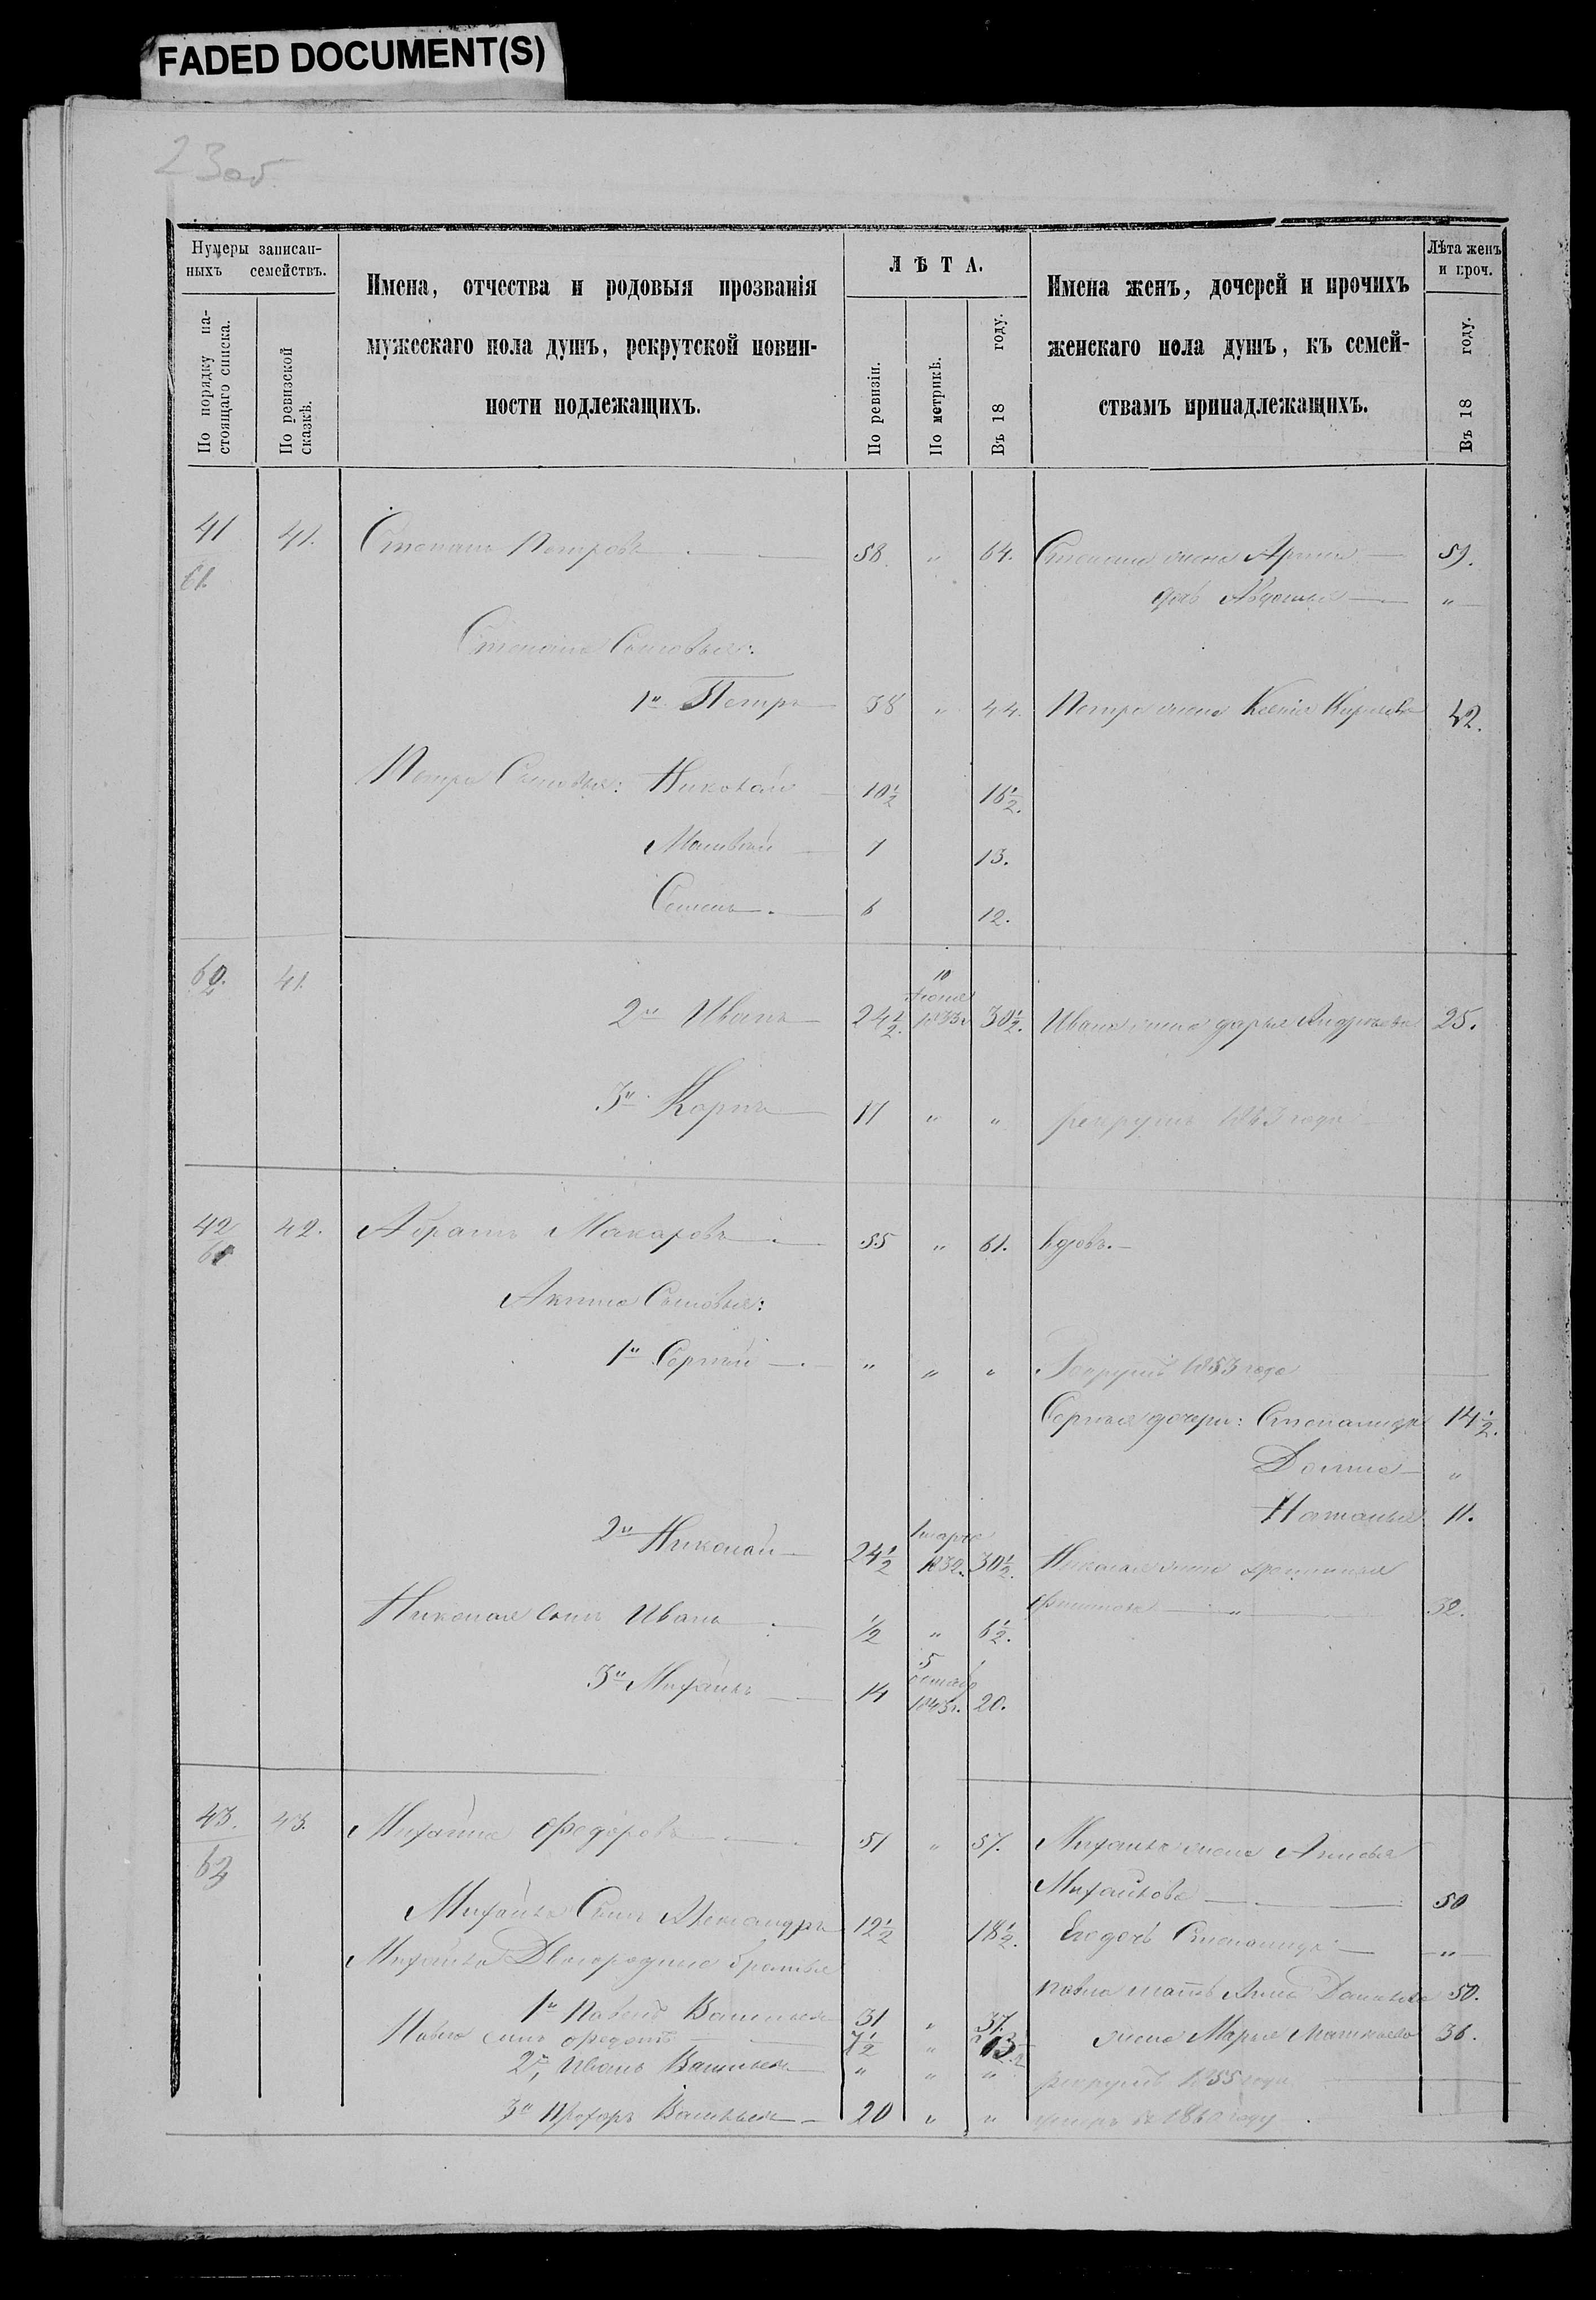 FADED DOCUMENT(S)
23 об
Нумеры записан-
ныхъ семействъ.
По порядку на-
стоящаго списка.
По ревизской
сказкѣ.
Имена, отчества и родовыя прозванія
мужескаго пола душъ, рекрутской повин-
ности подлежащихъ.
ЛѢТА.
По ревизіи.
По метрикѣ.
Въ 18 году.
Имена женъ, дочерей и прочихъ
женскаго пола душъ, къ семей-
ствамъ принадлежащихъ.
Лѣта женъ
и проч.
Въ 18 году.
41 41. Степанъ Петровъ 58 " 64. Степана жена 59.
61. дочь Авдотья "
Степана Сыновья:
1й Петръ 38 " 44. Петра жена Ксенія 42.
Петра Сыновья: Николай 10½ 16½.
Матвѣй 1 13.
Семенъ 6 12.
10
62. 41 Іюня
2й Иванъ 24½. 1833г 30½. Ивана жена дарья Андреева 25.
3й Карпъ 17 " " рекрутъ 1863 года
42 42. Абрамъ Макаровъ 55 " 61. вдовъ.
Сыновья:
1й Сергѣй " " " Рекрутъ 1853 года
Сергѣя дочери: Степанида 14½.
Домна "
Наталья 11.
2й Николай 24½ марта 1832. 30½. Николая жена
32.
Николая сынъ Иванъ ½ " 6½.
5
3й Михаилъ 14 1843г. 20.
43. 43. Михаила Федоровъ 51 " 57. Михаила жена
63 Михайлова 50
Михаила Сынъ Александръ 12½ 18½. Его дочь Степанида "
Михаила Двоюродные братья
Павла мать Анна 50.
1й Павелъ Васильевъ 31 " 37.
Павла сынъ Федотъ 7½ " 13½ жена Марья Матвѣева 36.
2й, Иванъ Васильевъ " " " рекрутъ 1855 года
3й Прохоръ Васильевъ 20 " " умеръ въ 1860 году.